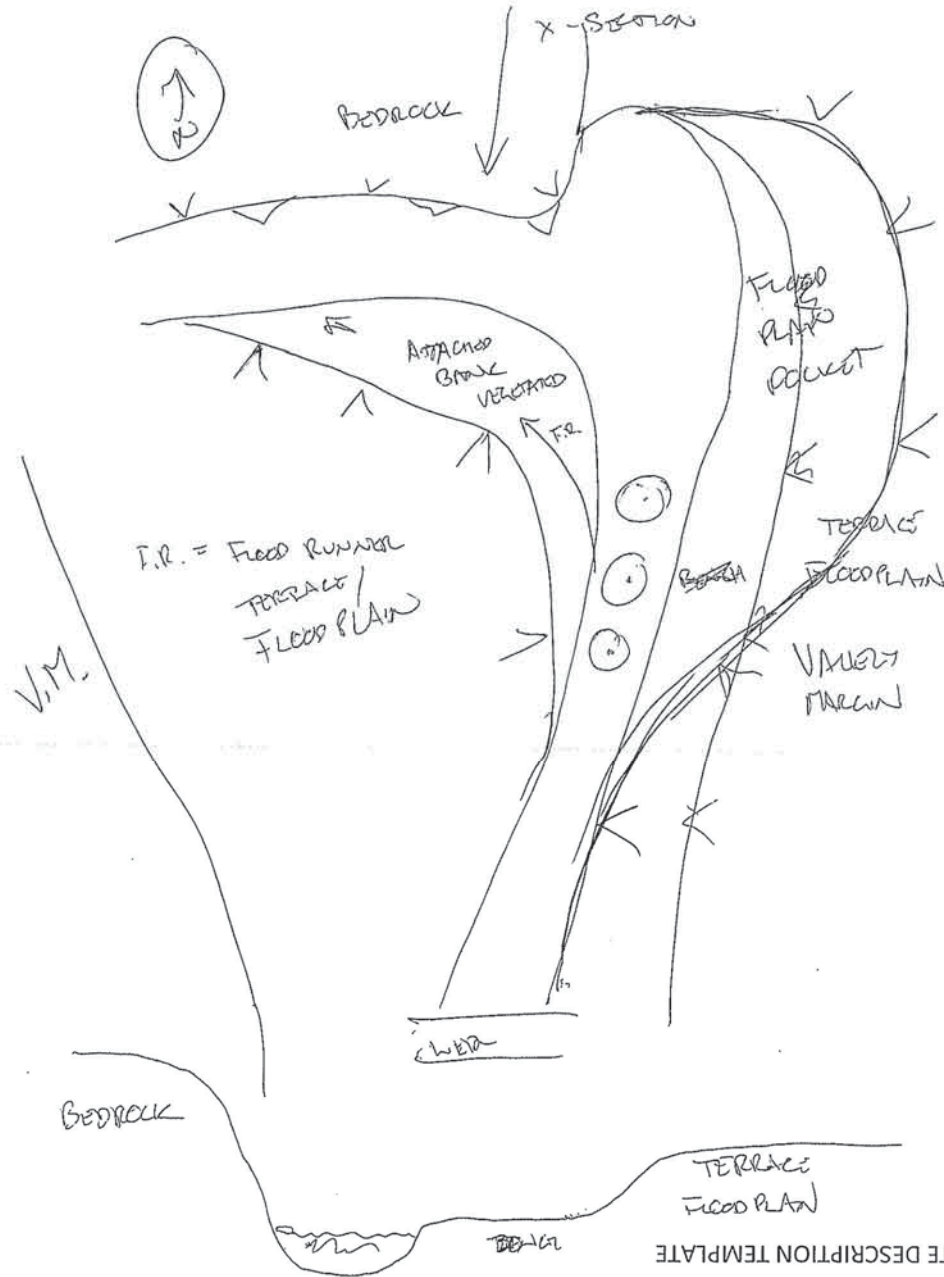 X-SECTION
N
BEDROCK
FLOOD
PLAIN
POCKET
ATTACHED
BANK
VEGETATED
F.R.
F.R. = FLOOD RUNNER
TERRACE/
FLOOD PLAIN
TERRACE
FLOODPLAIN
BENCH
V.M.
VALLEY
MARGIN
WEIR
BEDROCK
TERRACE
FLOODPLAIN
BENCH
TE DESCRIPTION TEMPLATE